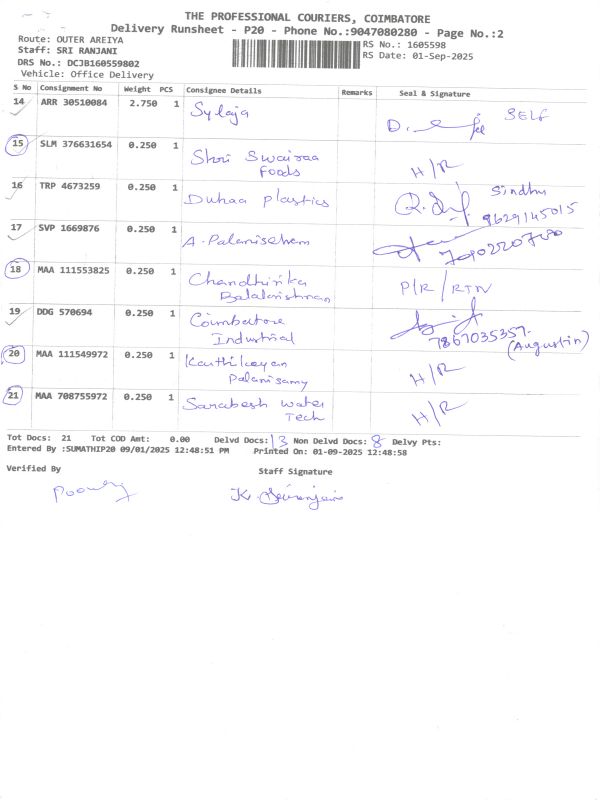 THE PROFESSIONAL COURIERS, COIMBATORE
Delivery Runsheet - P20 - Phone No.:9047080280 - Page No.:2
Route: OUTER AREIYA
RS No.: 1605598
Staff: SRI RANJANI
RS Date: 01-Sep-2025
DRS No.: DCJB160559802
Vehicle: Office Delivery
S No Consignment No Weight PCS Consignee Details Remarks Seal & Signature
14 ARR 30510084 2.750 1 Sylaja SELF
15 SLM 376631654 0.250 1 Shri Swairaa Foods H/R
16 TRP 4673259 0.250 1 Duhaa plastics Sindhu 9629145015
17 SVP 1669876 0.250 1 A. Palanisehem
18 MAA 111553825 0.250 1 Chandhirika Balakrishnan P/R/RTN
19 DDG 570694 0.250 1 Coimbatore Industrial 7867035357. (Augustin)
20 MAA 111549972 0.250 1 Karthikeyan Palanisamy H/R
21 MAA 708755972 0.250 1 Sarabesh water Tech H/R
Tot Docs: 21 Tot COD Amt: 0.00 Delvd Docs: 13 Non Delvd Docs: 8 Delvy Pts:
Entered By :SUMATHIP20 09/01/2025 12:48:51 PM Printed On: 01-09-2025 12:48:58
Verified By Staff Signature